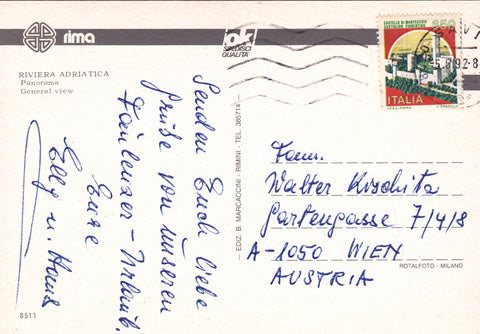 rima
ok
SPEDISCI
QUALITA'
RIVIERA ADRIATICA
Panorama
General view
Senden Euch liebe
Grüße von unserem
Faulenzer - Urlaub,
Eure
Elly u. Hans
8511
EDIZ. B. MARCACCINI - RIMINI - TEL. 385714 -
CASTELLO DI MONTECCHIO
CASTIGLION FIORENTINO
850
ITALIA
5.8.92-8
Fam.
Walter Kischita
Gartengasse 7/4/8
A-1050 WIEN
AUSTRIA
ROTALFOTO - MILANO